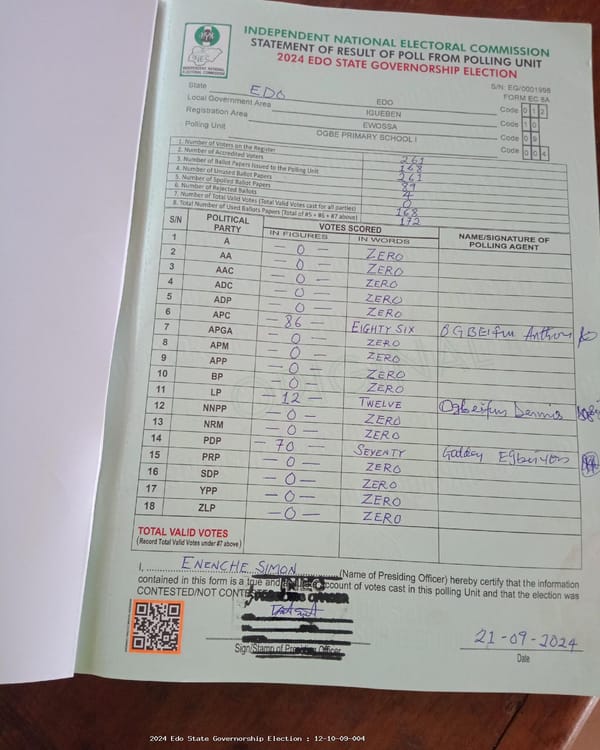 INDEPENDENT NATIONAL ELECTORAL COMMISSION
STATEMENT OF RESULT OF POLL FROM POLLING UNIT
2024 EDO STATE GOVERNORSHIP ELECTION
INEC
INDEPENDENT NATIONAL ELECTORAL COMMISSION
S/N: EG/0001998
FORM EC 8A
State EDO EDO Code 0 1 2
Local Government Area IGUEBEN Code 1 0
Registration Area EWOSSA Code 0 9
Polling Unit OGBE PRIMARY SCHOOL I Code 0 0 4
1. Number of Voters on the Register 261
2. Number of Accredited Voters 168
3. Number of Ballot Papers Issued to the Polling Unit 261
4. Number of Unused Ballot Papers 89
5. Number of Spoiled Ballot Papers 4
6. Number of Rejected Ballots 0
7. Number of Total Valid Votes (Total Valid Votes cast for all parties) 168
8. Total Number of Used Ballots Papers (Total of #5 + #6 + #7 above) 172
S/N POLITICAL PARTY VOTES SCORED NAME/SIGNATURE OF POLLING AGENT
IN FIGURES IN WORDS
1 A - 0 - ZERO
2 AA - 0 - ZERO
3 AAC - 0 - ZERO
4 ADC - 0 - ZERO
5 ADP - 0 - ZERO
6 APC - 86 - EIGHTY SIX OGBEIFUN Anthony
7 APGA - 0 - ZERO
8 APM - 0 - ZERO
9 APP - 0 - ZERO
10 BP - 0 - ZERO
11 LP - 12 - TWELVE Ogbeifun Dennis
12 NNPP - 0 - ZERO
13 NRM - 0 - ZERO
14 PDP - 70 - SEVENTY
15 PRP - 0 - ZERO
16 SDP - 0 - ZERO
17 YPP - 0 - ZERO
18 ZLP - 0 - ZERO
TOTAL VALID VOTES
(Record Total Valid Votes under #7 above)
I, ENENCHE SIMON (Name of Presiding Officer) hereby certify that the information
contained in this form is a true and account of votes cast in this polling Unit and that the election was
CONTESTED/NOT
INEC
PRESIDING OFFICER
Sign/Stamp of Presiding Officer
21-09-2024
Date
2024 Edo State Governorship Election : 12-10-09-004